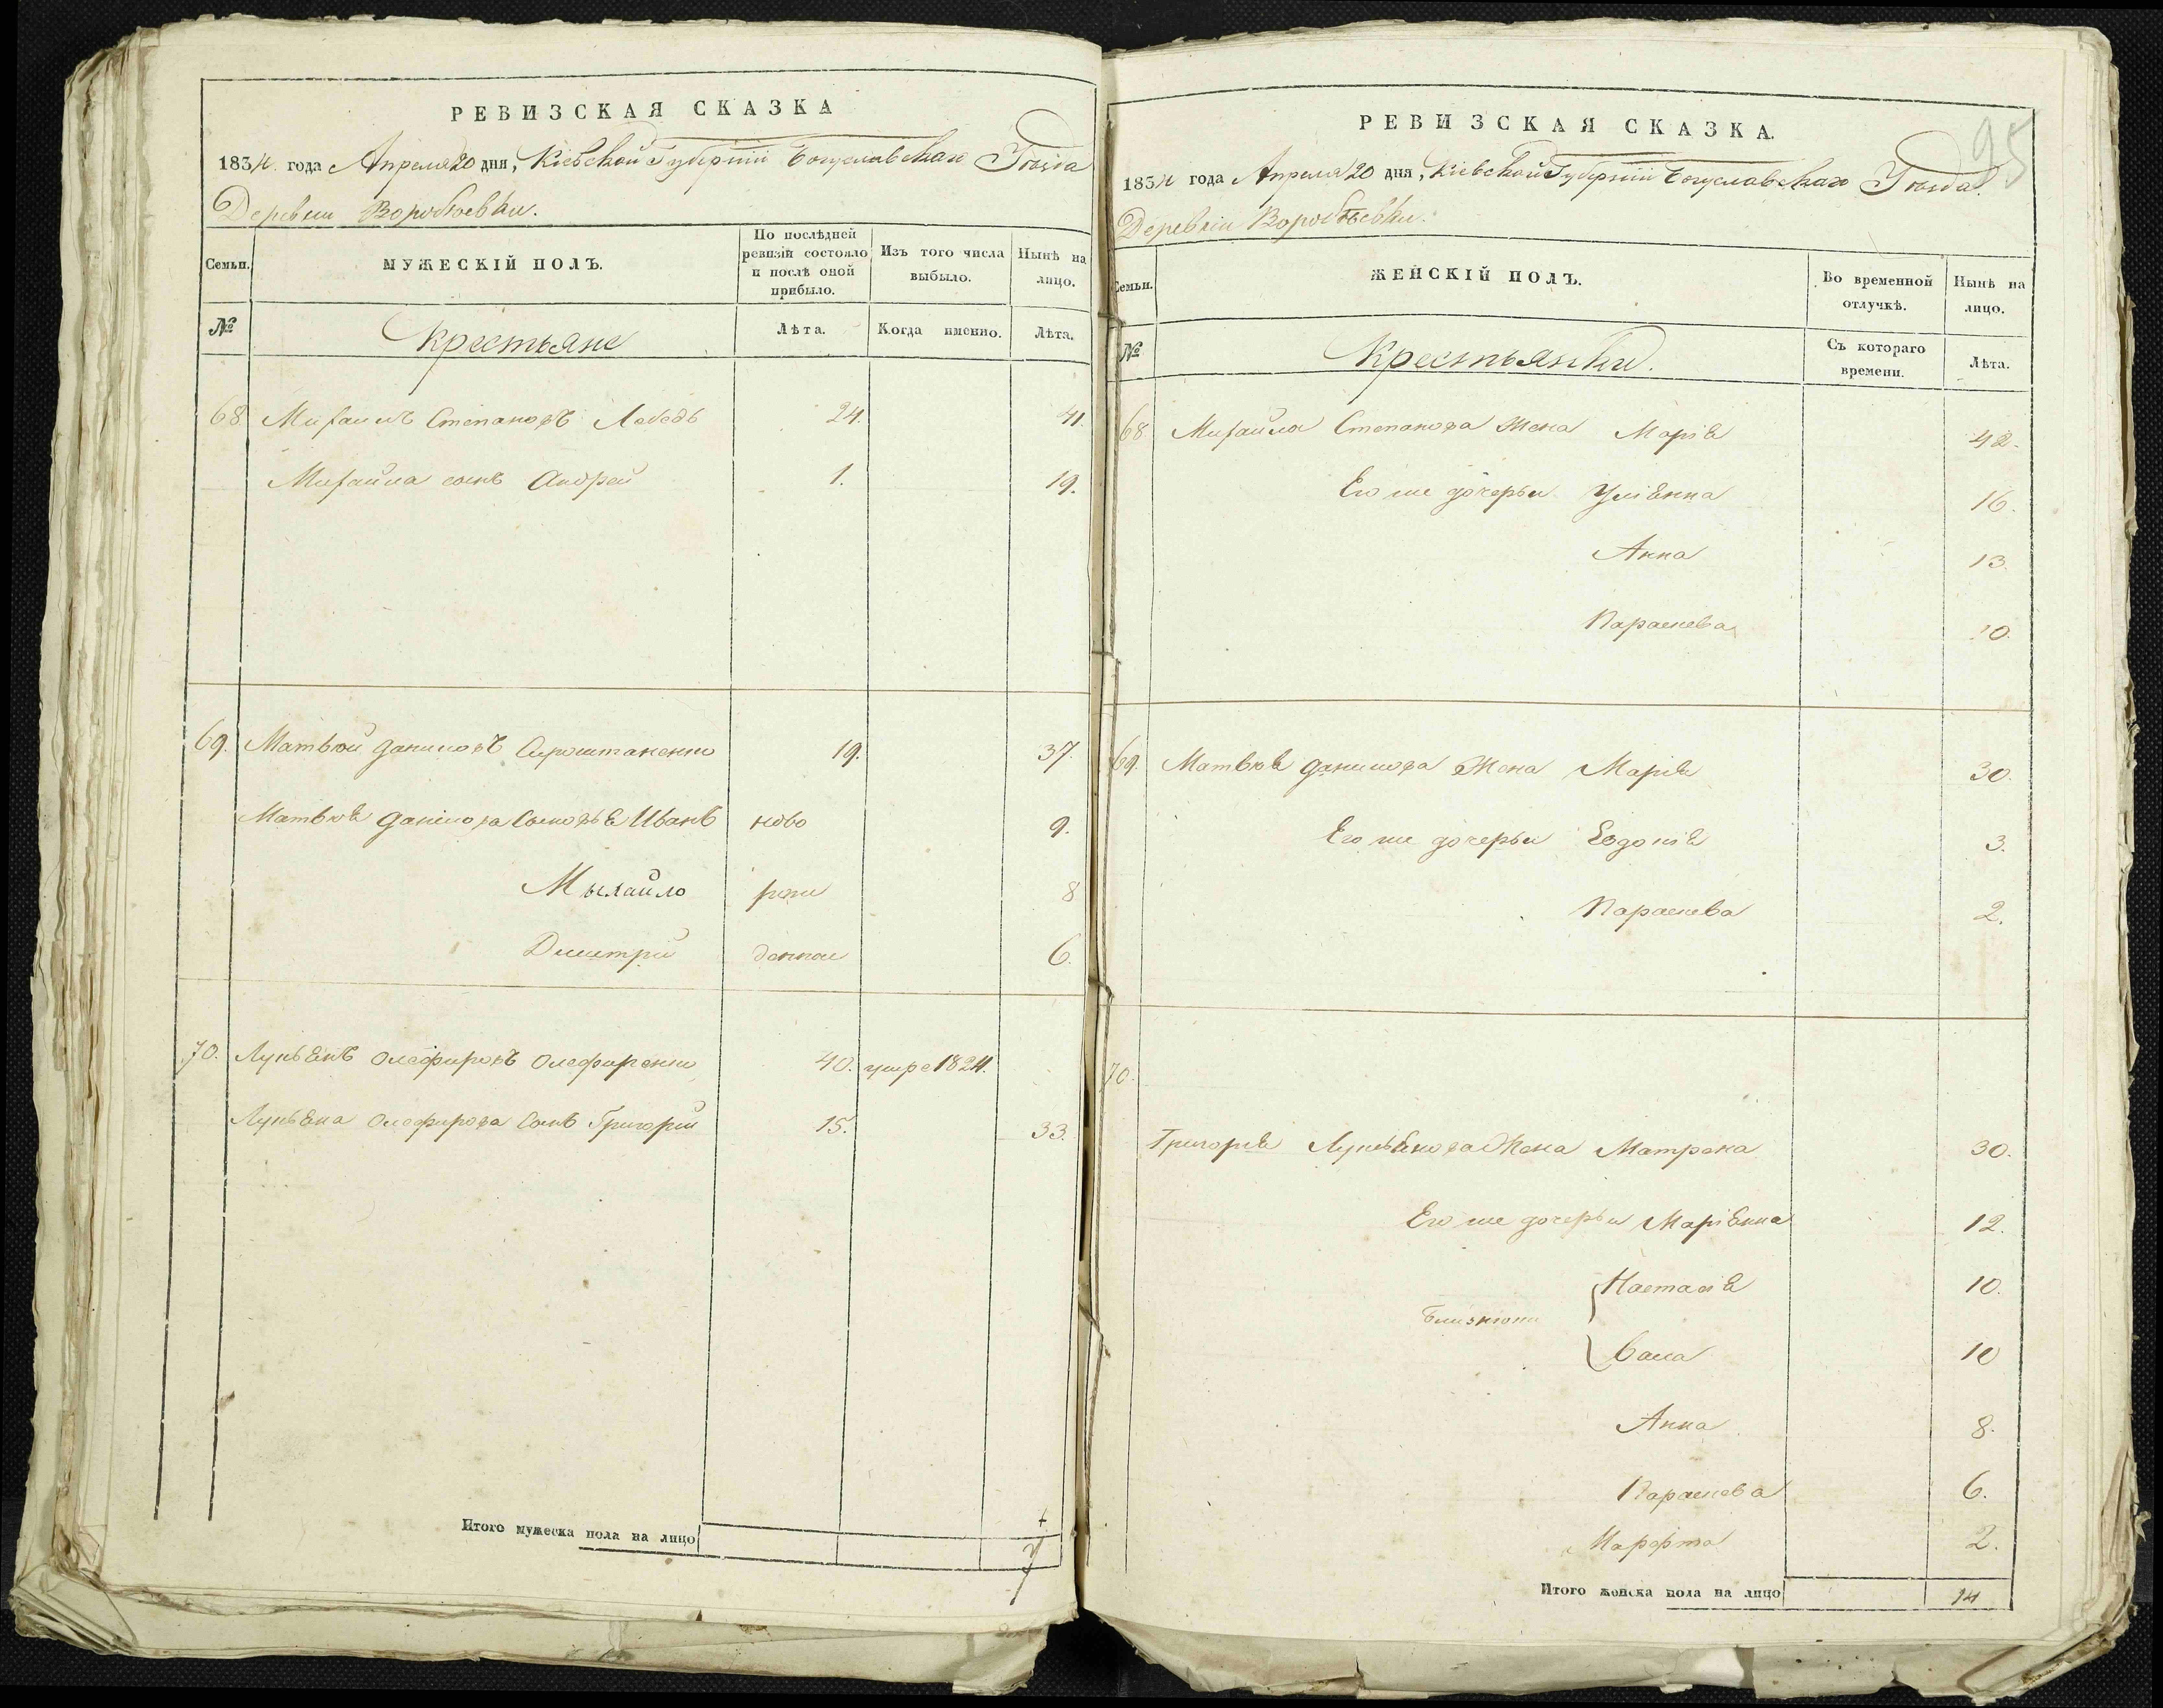 РЕВИЗСКАЯ СКАЗКА
1834. года Апреля 20 дня, Кіевской Губерніи Богуславскаго Уѣзда
Деревни Воробьевки.
Семьи.
МУЖЕСКІЙ ПОЛЪ.
По послѣдней ревизіи состояло и послѣ оной прибыло.
Изъ того числа выбыло.
Нынѣ на лицо.
№
Крестьяне
Лѣта.
Когда именно.
Лѣта.
68 Михаилъ Степановъ Лебедь 24. 41.
Михайла сынъ Андрей 1. 19.
69. Матвѣй Даниловъ 19. 37.
Матвѣя Данилова Сыновья Иванъ ново 9.
Мыхайло рож 8
Дмитрій денные 6.
70. Лукьянъ Олефировъ Олефиренко 40. умре 1824.
Лукьяна Олефирова Сынъ Григорій 15. 33.
Итого мужеска пола на лицо
7
95
РЕВИЗСКАЯ СКАЗКА.
1834 года Апреля 20 дня, Кіевской Губерніи Богуславскаго Уѣзда.
Деревни Воробьевки.
Семьи.
ЖЕНСКІЙ ПОЛЪ.
Во временной отлучкѣ.
Нынѣ на лицо.
№
Крестьянки.
Съ котораго времени.
Лѣта.
68 Михайла Степанова Жена Марія 42.
Его же дочерьи Уліянна 16.
Анна 13.
Параскева 10.
69. Матвѣя Данилова Жена Марія 30.
Его же дочерьи Евдокія 3.
Параскева 2.
70.
Григорія Лукьянова Жена Матрена 30.
Его же дочерьи Маріянна 12.
Настасія 10.
близнюки
10
Анна 8.
Параскева 6.
Марфта 2.
Итого женска пола на лицо 14